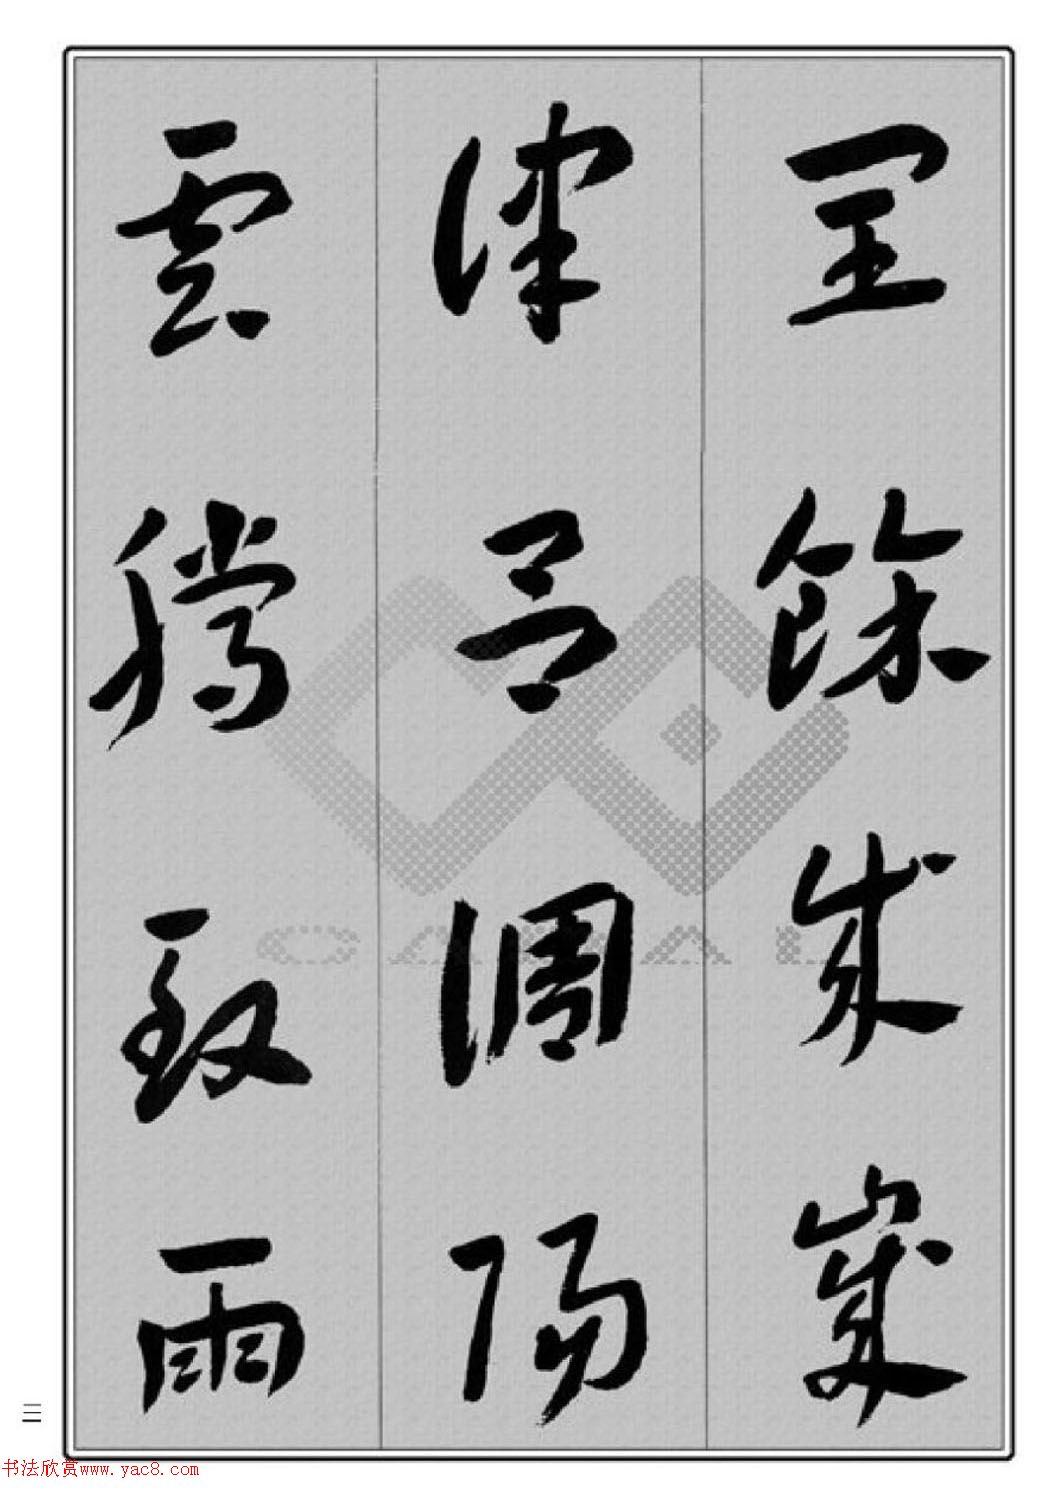 閏餘成歲
律吕調陽
雲騰致雨
三
书法欣赏www.yac8.com